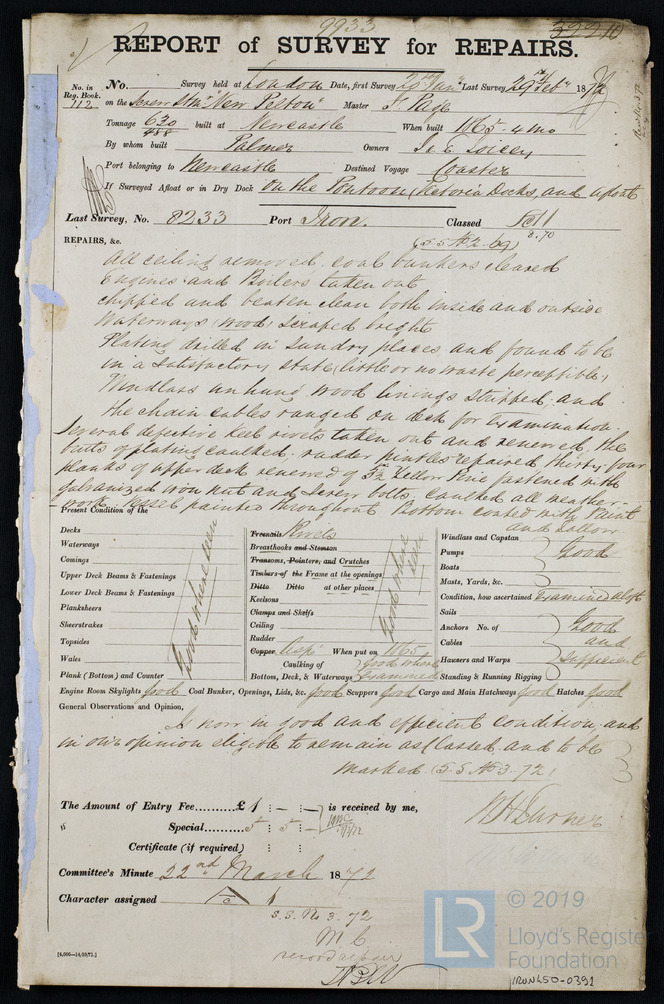 9933
33210
REPORT of SURVEY for REPAIRS.
No. in Reg. Book. 112
No. Survey held at London Date, first Survey 20th Jan Last Survey 29th Feby 1872
on the Screw Str "New Pelton" Master J. Page
Tonnage 630 488 built at Newcastle When built 1865-4mo
By whom built Palmer Owners J. & E. Joicey
Port belonging to Newcastle Destined Voyage Coaster
If Surveyed Afloat or in Dry Dock On the Pontoon, Victoria Docks, and afloat
Last Survey, No. 8233 Port Iron. Classed
(S.S. No 2-69) 2.70
REPAIRS, &c.
All ceiling removed. coal bunkers cleared
Engines and Boilers taken out
chipped and beaten clean both inside and outside
Waterways (wood) scraped bright
Plating drilled in sundry places and found to be
in a satisfactory state, little or no waste perceptible,
Windlass unhung wood linings stripped, and
the chain cables ranged on deck for examination.
Several defective keel rivets taken out and renewed, the
butts of plating caulked, rudder pintles repaired thirty four
planks of upper deck renewed of Yellow Pine fastened with
galvanized iron nut and screw bolts, caulked all weather
work. Vessel painted throughout Bottom coated with Paint
and Tallow
Present Condition of the
Decks
Waterways
Comings
Upper Deck Beams & Fastenings
Lower Deck Beams & Fastenings
Planksheers
Sheerstrakes
Topsides
Wales
Plank (Bottom) and Counter
Good where seen
Treenails Rivets
Breasthooks and Stemson
Transoms, Pointers, and Crutches
Timbers of the Frame at the openings
Ditto Ditto at other places
Keelsons
Clamps and Shelfs
Ceiling
Rudder
Good where seen
Copper When put on 1865
Caulking of Bottom, Deck, & Waterways good where examined
Windlass and Capstan
Pumps
Boats
Masts, Yards, &c.
Good
Condition, how ascertained Examined aloft
Sails
Anchors No. of
Cables
Hausers and Warps
Standing & Running Rigging
Good and sufficient
Engine Room Skylights good Coal Bunker, Openings, Lids, &c. good Scuppers good Cargo and Main Hatchways good Hatches good
General Observations and Opinion,
Is now in good and efficient condition, and
in our opinion eligible to remain as classed and to be
marked (S.S. No 3-72)
The Amount of Entry Fee..........£ 1 : — : — is received by me,
Special.......... 5 : 5 : —
Certificate (if required)
W H Turner
Committee's Minute 22nd March 1872
Character assigned A 1
S.S. No 3.72
M C
[4,000—14/09/71.]
© 2019
LR
Lloyd's Register
Foundation
IRON450-0391